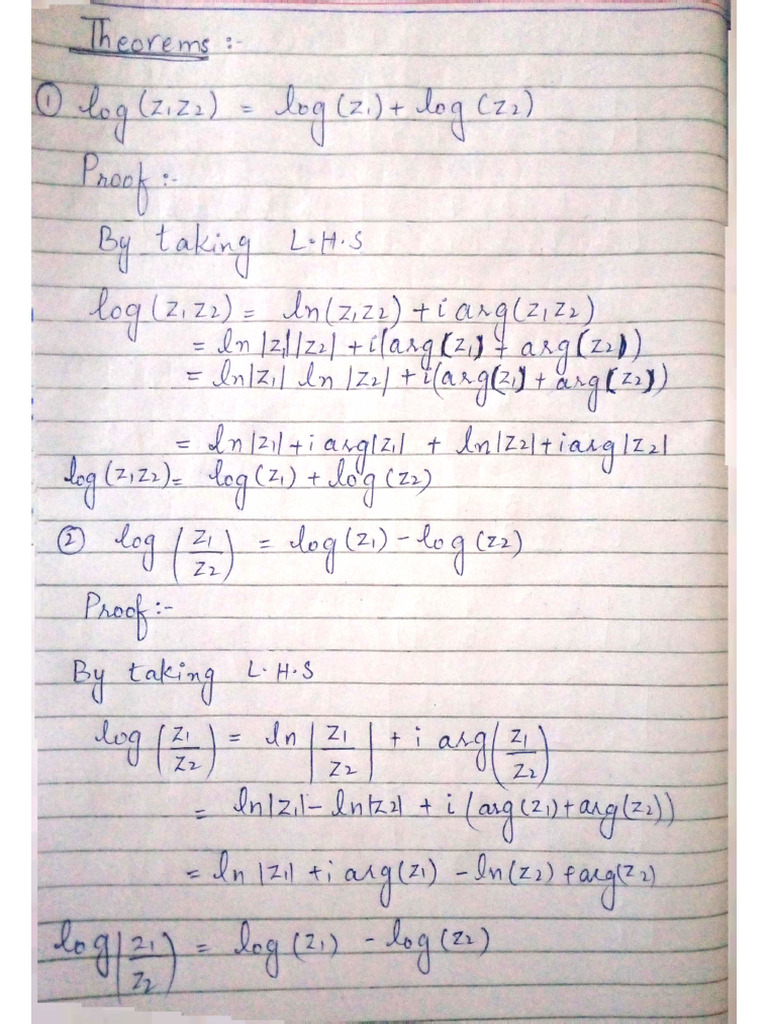 Theorems :-
① log(z₁z₂) = log(z₁) + log(z₂)
Proof :-
By taking L.H.S
log(z₁z₂) = ln(z₁z₂) + i arg(z₁z₂)
= ln|z₁||z₂| + i(arg(z₁) + arg(z₂))
= ln|z₁| ln|z₂| + i(arg(z₁) + arg(z₂))
= ln|z₁| + i arg|z₁| + ln|z₂| + i arg|z₂|
log(z₁z₂) = log(z₁) + log(z₂)
② log(z₁/z₂) = log(z₁) - log(z₂)
Proof :-
By taking L.H.S
log(z₁/z₂) = ln|z₁/z₂| + i arg(z₁/z₂)
= ln|z₁| - ln|z₂| + i(arg(z₁) + arg(z₂))
= ln|z₁| + i arg(z₁) - ln(z₂) + arg(z₂)
log(z₁/z₂) = log(z₁) - log(z₂)